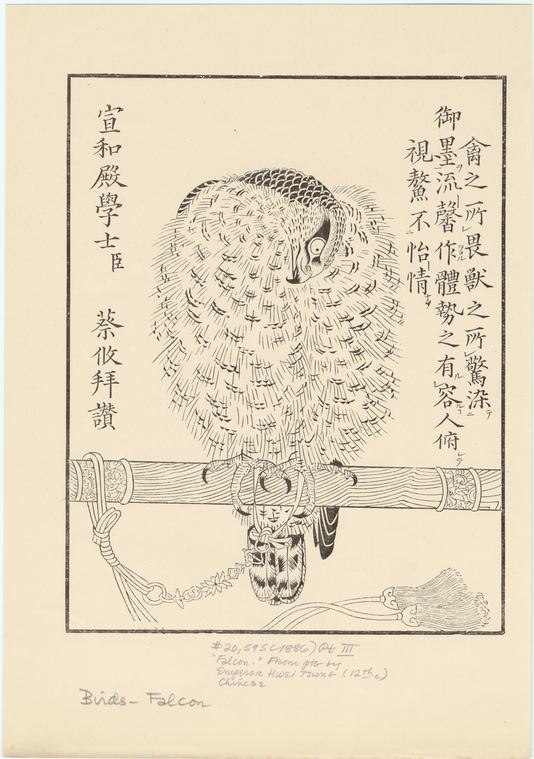 禽之所畏獸之所驚染
御墨流馨作體勢之有容人俯
視驁不怡情
宣和殿學士臣 蔡攸拜讚
#20,595 (1886) Pt III
"Falcon." From ptg by
Emperor Hwei Tsung (12th c)
Chinese
Birds – Falcon